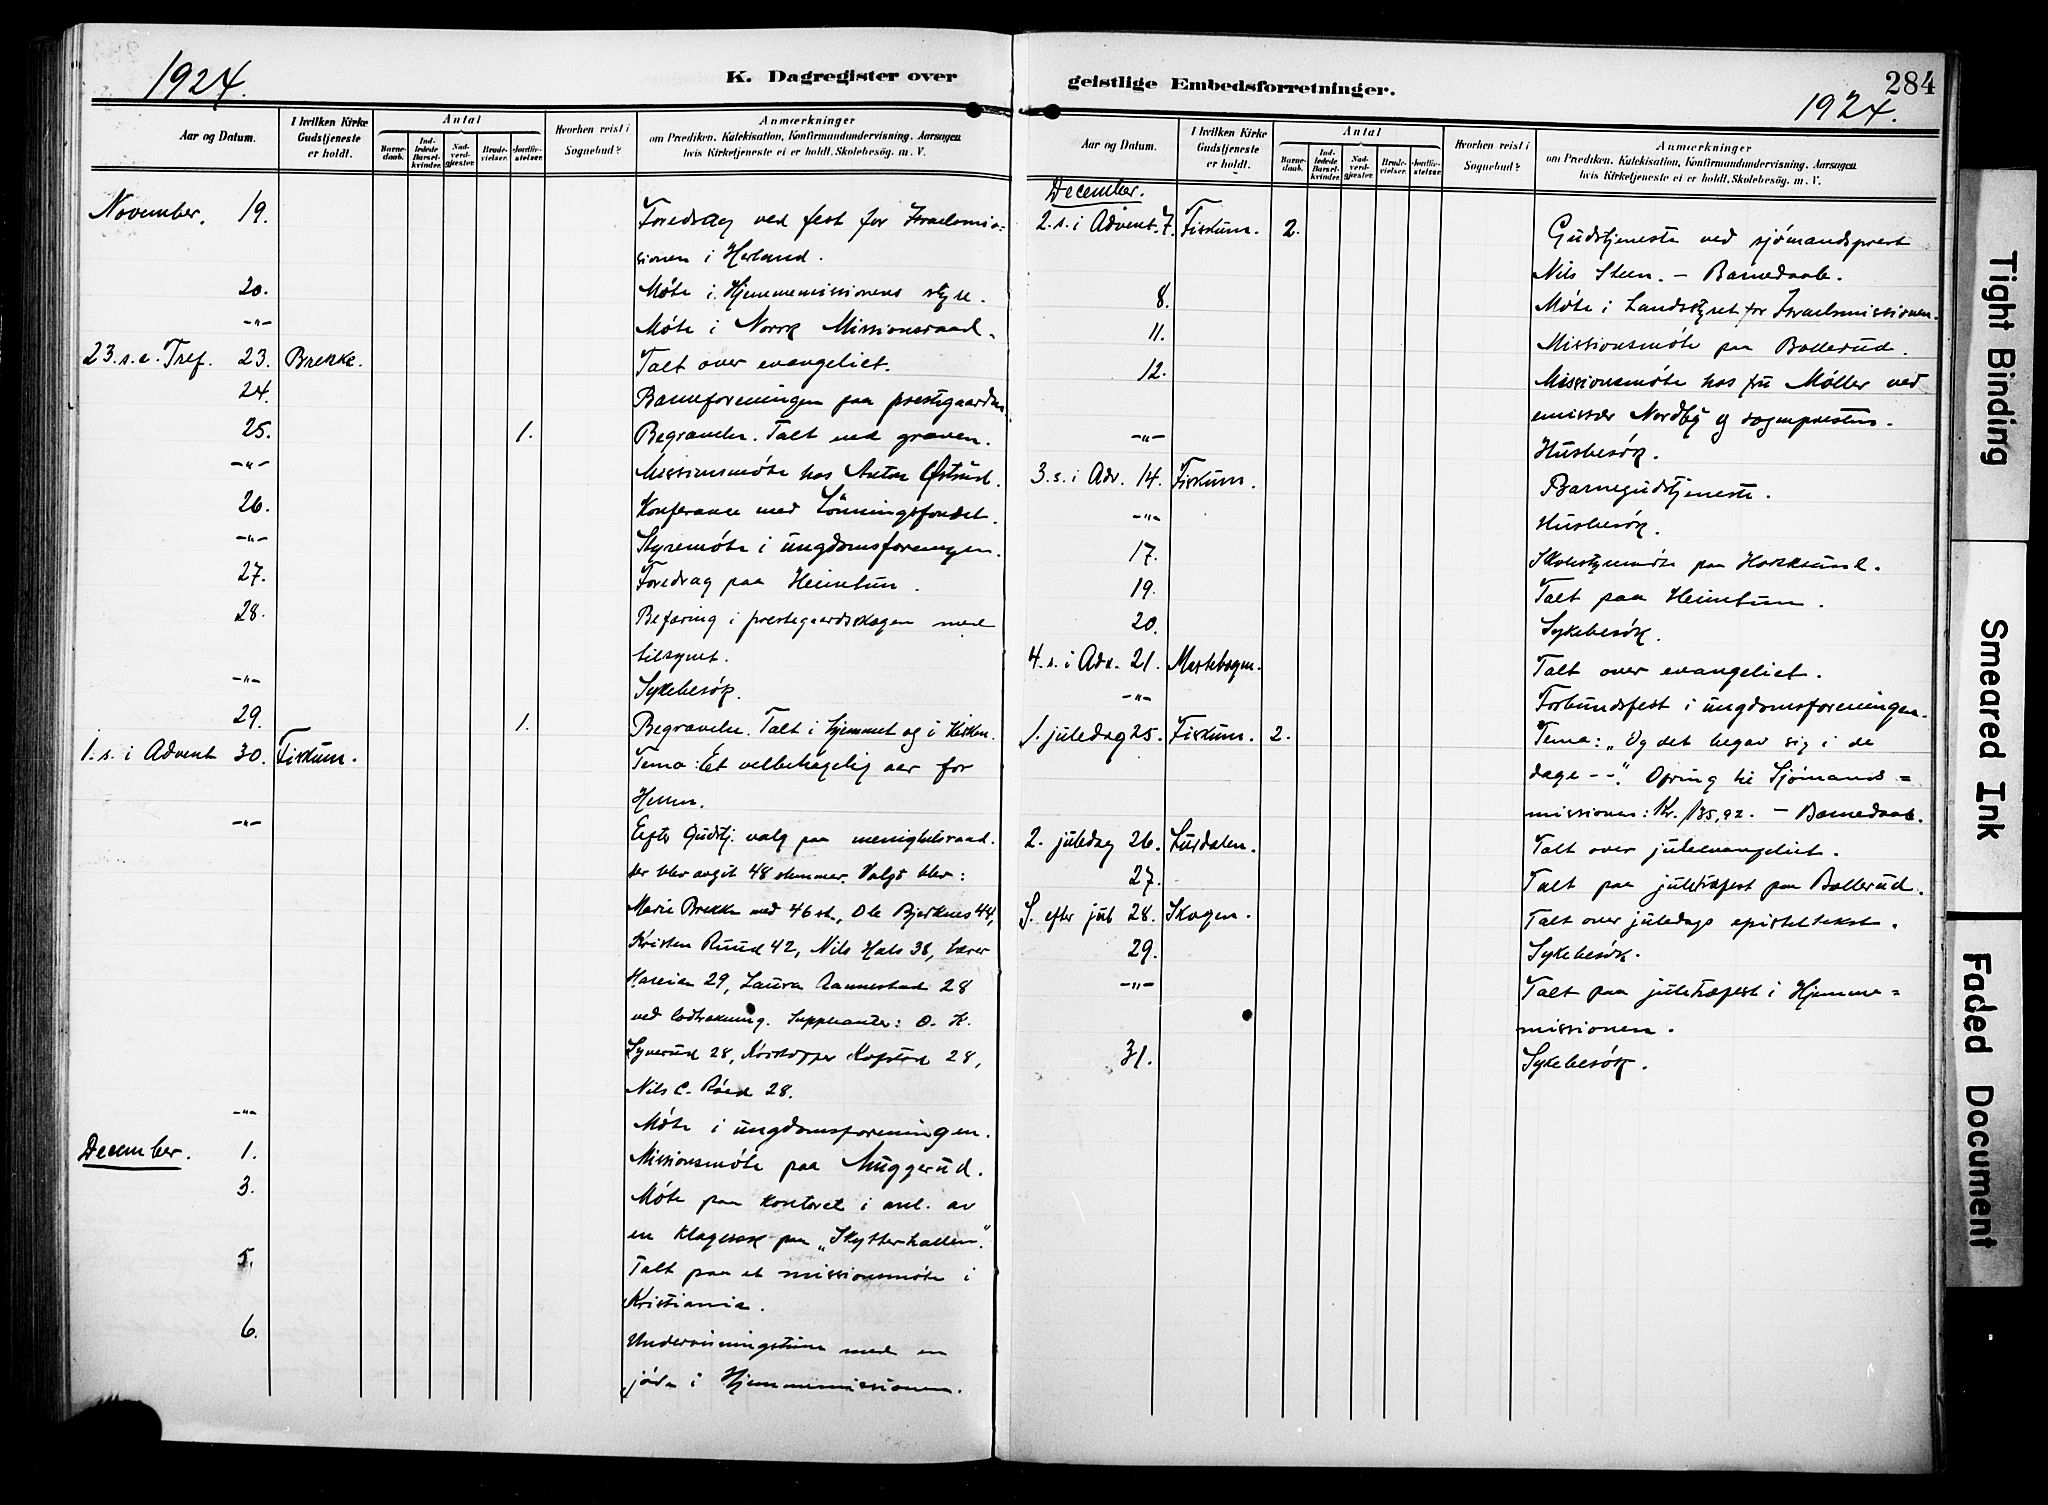 1924.
K. Dagregister over
Aar og Datum.
I hvilken Kirke Gudstjeneste er holdt.
Antal
Barnedaab.
Indledede Barselkvinder.
Nadverdgjester.
Brudevielser.
Jordfæstelser.
Hvorhen reist i Sognebud?
Anmærkninger
om Prædiken, Katekisation, Konfirmandundervisning, Aarsagen
hvis Kirketjeneste ei er holdt, Skolebesøg, m. V.
November. 19. Foredrag ved fest for Israelsmis-
sionen i Herland.
20. Møte i Hjemmemissionens styre.
-"- Møte i Norsk Missionsraad.
23. s. e. Tref. 23. Brekke. Talt over evangeliet.
24. Barneforeningen paa prestegaarden.
25. 1. Begravelse. Talt ved graven.
-"- Missionsmøte hos Anton Østrud.
26. Konferanse med Lönningsfondet.
-"- Styremøte i ungdomsforeningen.
27. Foredrag paa Heimtun.
28. Befaring i prestegaardsskogen med
tilsynet.
-"- Sykebesök.
29. 1. Begravelse. Talt i hjemmet og i kirken.
1. s. i Advent 30. Fiskum. Tema: Et velbehagelig aar for
Herren.
-"- Efter Gudstj. valg paa menighetsraad.
Der blev avgit 48 stemmer. Valgt blev:
Marie Brekke med 46 st., Ole Bjerknes 44,
Kristen Ruud 42, Nils Hals 38, Lærer
29, Laura Aannestad 28
ved lodtrækning. Suppleanter: O. K.
28, Kofstad 28,
Nils C. Röed 28.
-"- Möte i ungdomsforeningen.
December. 1. Missionsmöte paa Muggerud.
3. Möte paa kontoret i anl. av
en klagesak paa „Skytterhallen."
5. Talt paa et missionsmöte i
Kristiania.
6. Undervisningstime med en
jöde i Hjemmemissionen.
geistlige Embedsforretninger.
284
1924.
Aar og Datum.
I hvilken Kirke Gudstjeneste er holdt.
Antal
Barnedaab.
Indledede Barselkvinder.
Nadverdgjester.
Brudevielser.
Jordfæstelser.
Hvorhen reist i Sognebud?
Anmærkninger
om Prædiken, Katekisation, Konfirmandundervisning, Aarsagen
hvis Kirketjeneste ei er holdt, Skolebesøg, m. V.
December.
2. s. i Advent. 7. Fiskum. 2. Gudstjeneste ved sjömandsprest
Nils Steen. – Barnedaab.
8. Møte i Landsstyret for Israelsmissionen.
11. Missionsmöte paa Bollerud.
12. Missionsmöte hos fru Møller ved
emissær Nordby og sogneprästen.
-"- Husbesök.
3. s. i Adv. 14. Fiskum. Barnegudstjeneste.
-"- Husbesök.
17. Skolestyremöte paa Hokksund.
19. Talt paa Heimtun.
20. Sykebesök.
4. s. i Adv. 21. Mastebogen. Talt over evangeliet.
-"- Forbundsfest i ungdomsforeningen.
1. juledag 25. Fiskum. 2. Tema: „Og det begav sig i de
dage - -". Ofring til Sjömands=
missionen: Kr. 135,92. – Barnedaab.
2. juledag 26. Lurdalen. Talt over juleevangeliet.
27. Talt paa juletræfest paa Bollerud.
S. efter jul 28. Skogen. Talt over juledags epistelteKst.
29. Sykebesök.
-"- Talt paa juletræfest i Hjemme=
missionen.
31. Sykebesök.
Tight Binding
Smeared Ink
Faded Document